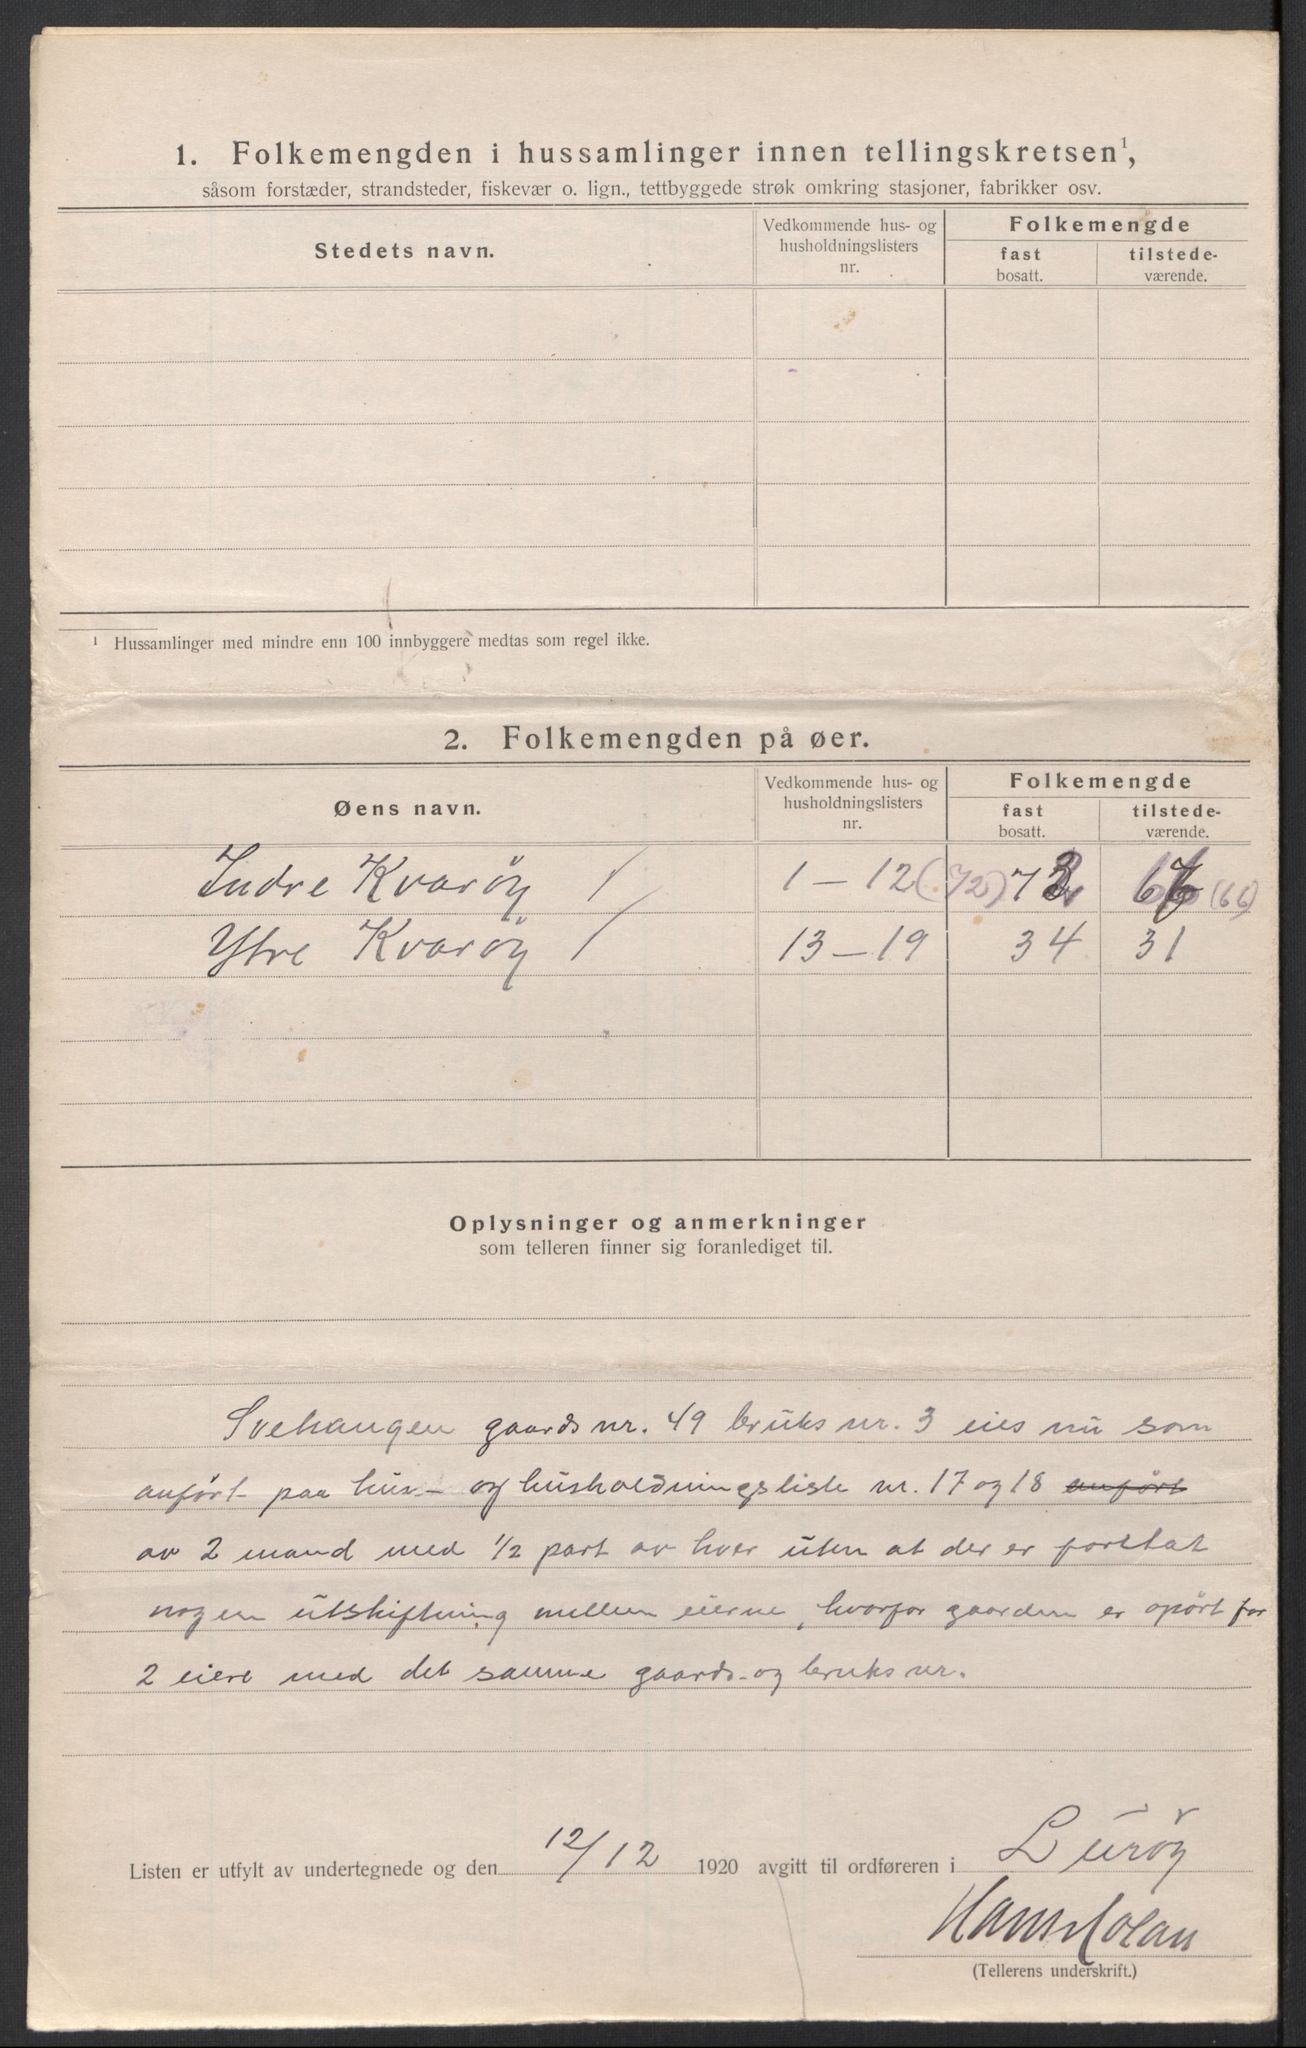 1. Folkemengden i hussamlinger innen tellingskretsen¹,
såsom forstæder, strandsteder, fiskevær o. lign., tettbyggede strøk omkring stasjoner, fabrikker osv.
Stedets navn.
Vedkommende hus- og husholdningslisters nr.
Folkemengde
fast bosatt.
tilstede-værende.
¹ Hussamlinger med mindre enn 100 innbyggere medtas som regel ikke.
2. Folkemengden på øer.
Øens navn.
Vedkommende hus- og husholdningslisters nr.
Folkemengde
fast bosatt.
tilstede-værende.
Indre Kvarøy / 1 – 12 (72) 72 66 (66)
Ytre Kvarøy / 13 – 19 34 31
Oplysninger og anmerkninger
som telleren finner sig foranlediget til.
Svehaugen gaards nr. 49 bruks nr. 3 eies nu som
anført paa hus- og husholdningsliste nr. 17 og 18 anført
av 2 mand med 1/2 part av hver uten at der er foretat
nogen utskiftning mellem eierne, hvorfor gaarden er opört for
2 eiere med det samme gaards- og bruks nr.
Listen er utfylt av undertegnede og den 12/12 1920 avgitt til ordføreren i Lurøy
(Tellerens underskrift.)